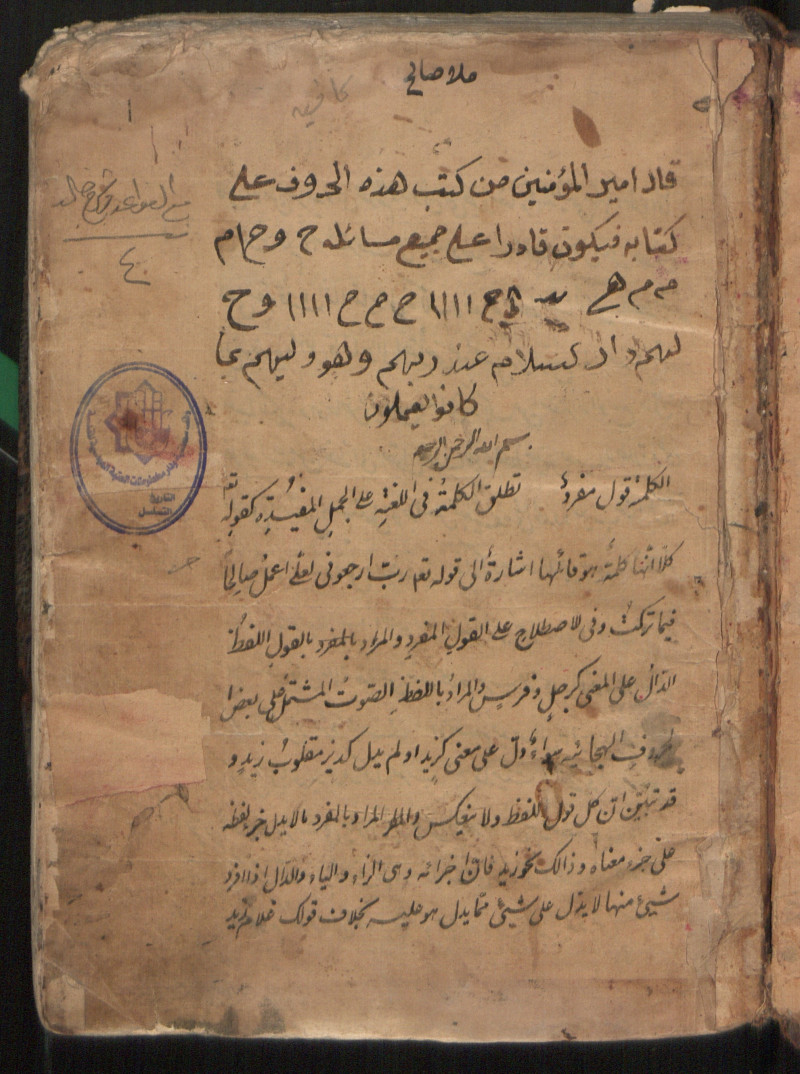 ملا صالح
كافيه
قال امير المؤمنين من كتب هذه الحروف على
كتابه فيكون قادرا على جميع مسائله ح و ح ام
م م هي ح ١١١١ ح ح ح ١١١١ و ح
لهم دار السلام عند ربهم وهو وليهم بما
كانوا يعملون
بسم الله الرحمن الرحيم
الكلمة قول مفرد تطلق الكلمة فى اللغة على الجمل المفيدة كقوله تع
كلا انها كلمة هو قائلها اشارة الى قوله تع رب ارجعونى لعلى اعمل صالحا
فيما تركت وفى الاصطلاح على القول المفرد والمراد بالمفرد بالقول اللفظ
الدال على المعنى كرجل وفرس والمراد باللفظ الصوت المشتمل على بعض
الحروف الهجائيه سواء دل على معنى كزيد او لم يدل كديز مقلوب زيد و
قد تبين ان كل قول لفظ ولا ينعكس والمراد بالمفرد مالا يدل جزء لفظه
على جزء معناه وذالك نحو زيد فان اجزائه وهى الزاء والياء والدال اذا افرد
شيئ منها لا يدل على شيئ مما يدل هو عليه بخلاف قولك غلام زيد
٤٠